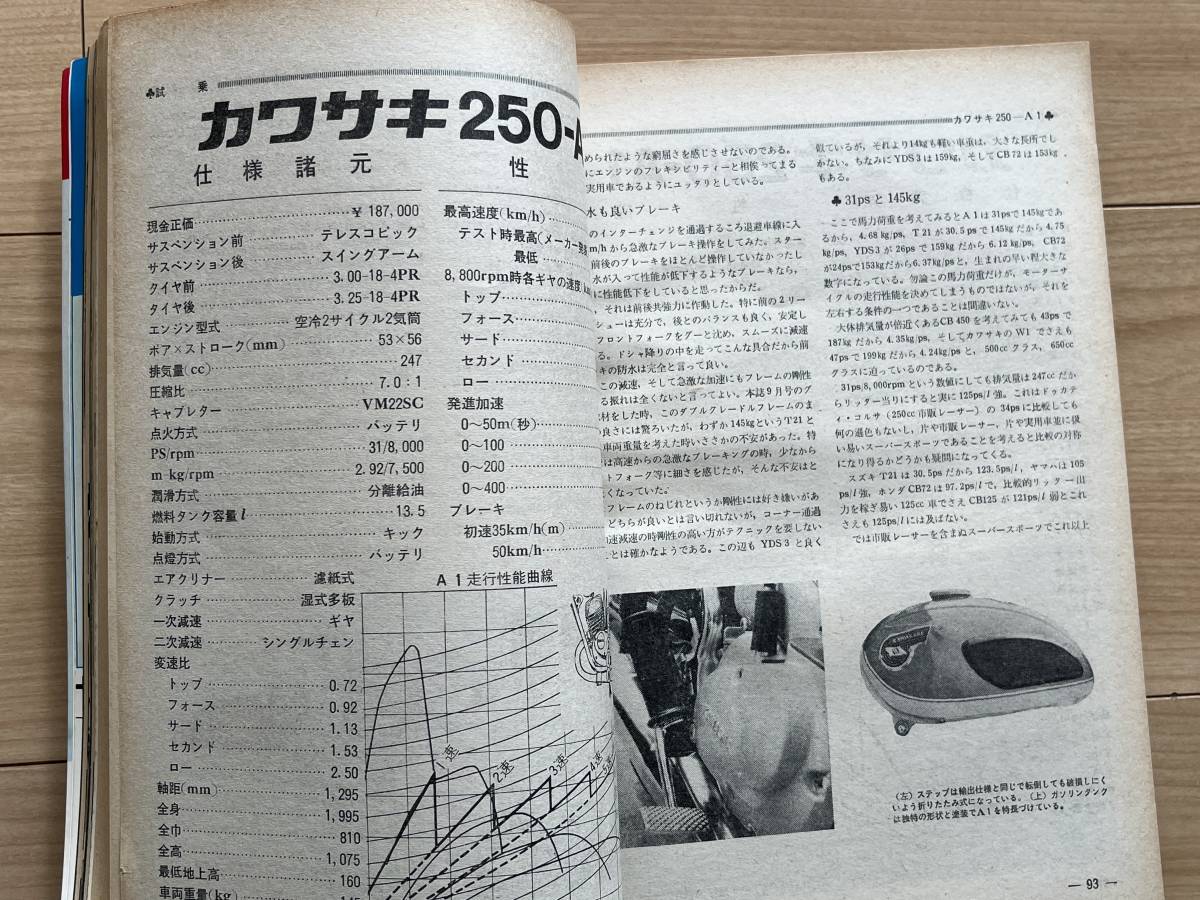 ♣試乗
カワサキ250-A
仕様諸元
現金正価 ¥ 187,000
サスペンション前 テレスコピック
サスペンション後 スイングアーム
タイヤ前 3.00-18-4PR
タイヤ後 3.25-18-4PR
エンジン型式 空冷2サイクル2気筒
ボア×ストローク(mm) 53×56
排気量(cc) 247
圧縮比 7.0:1
キャブレター VM22SC
点火方式 バッテリ
PS/rpm 31/8,000
m-kg/rpm 2.92/7,500
潤滑方式 分離給油
燃料タンク容量l 13.5
始動方式 キック
点燈方式 バッテリ
エアクリナー 濾紙式
クラッチ 湿式多板
一次減速 ギヤ
二次減速 シングルチェン
変速比
トップ 0.72
フォース 0.92
サード 1.13
セカンド 1.53
ロー 2.50
軸距(mm) 1,295
全身 1,995
全巾 810
全高 1,075
最低地上高 160
車両重量(kg) 145
性
最高速度(km/h)
テスト時最高(メーカー発表
最低
8,800rpm時各ギヤの速度
トップ
フォース
サード
セカンド
ロー
発進加速
0〜50m(秒)
0〜100
0〜200
0〜400
ブレーキ
初速35km/h(m)
50km/h
A1走行性能曲線
1速
2速
3速
4速
5速
カワサキ250—A1♣
められたような窮屈さを感じさせないのである。
にエンジンのフレキシビリティーと相俟ってまる
実用車であるようにユッタリとしている。
水も良いブレーキ
のインターチェンジを通過するころ退避車線に入
m/hから急激なブレーキ操作をしてみた。スター
前後のブレーキをほとんど操作していなかったし
水が入って性能が低下するようなブレーキなら、
に性能低下をしていると思ったからだ。
、それは前後共強力に作動した。特に前の2リー
シューは充分で、後とのバランスも良く、安定し
フロントフォークをグーと沈め、スムーズに減速
る。ドシャ降りの中を走ってこんな具合だから前
キの防水は完全と言って良い。
この減速、そして急激な加速にもフレームの剛性
る振れは全くないと言ってよい。本誌9月号のグ
材をした時、このダブルクレードルフレームのま
良さには驚ろいたが、わずか145kgというT21と
車両重量を考えた時いささかの不安があった。特
は高速からの急激なブレーキングの時、少なから
トフォーク等に細さを感じたが、そんな不安はと
くなっていた。
フレームのねじれというか剛性には好き嫌いがあ
どちらが良いとは言い切れないが、コーナー通過
速減速の時剛性の高い方がテクニックを要しない
とは確かなようである。この辺もYDS3と良く
似ているが、それより14kgも軽い車重は、大きな長所でし
かない。ちなみにYDS3は159kg、そしてCB72は153kg
もある。
♣31psと145kg
ここで馬力荷重を考えてみるとA1は31psで145kgであ
るから、4.68kg/ps、T21が30.5psで145kgだから4.75
kg/ps、YDS3が26psで159kgだから6.12kg/ps、CB72
が24psで153kgだから6.37kg/psと、生まれの早い程大きな
数字になっている。勿論この馬力荷重だけが、モーターサ
イクルの走行性能を決めてしまうものではないが、それを
左右する条件の一つであることは間違いない。
大体排気量が倍近くあるCB450を考えてみても43psで
187kgだから4.35kg/ps、そしてカワサキのW1でさえも
47psで199kgだから4.24kg/psと、500ccクラス、650cc
クラスに迫っているのである。
31ps/8,000rpmという数値にしても排気量は247ccだか
らリッター当りにすると実に125ps/l強。これはドゥカテ
ィ・コルサ(250cc市販レーサー)の34psに比較しても
何の遜色もないし、片や市販レーサー、片や実用車並に扱
い易いスーパースポーツであることを考えると比較の対称
になり得るかどうかも疑問になってくる。
スズキT21は30.5psだから123.5ps/l、ヤマハは105
ps/l強、ホンダCB72は97.2ps/lで、比較的リッター出
力を稼ぎ易い125cc車でさえCB125が121ps/l弱とこれ
さえも125ps/lには及ばない。
では市販レーサーを含まぬスーパースポーツでこれ以上
(左)ステップは輸出仕様と同じで転倒しても破損しにく
いよう折りたたみ式になっている。(上)ガソリンタンク
は独特の形状と塗装でA1を特長づけている。
— 93 —